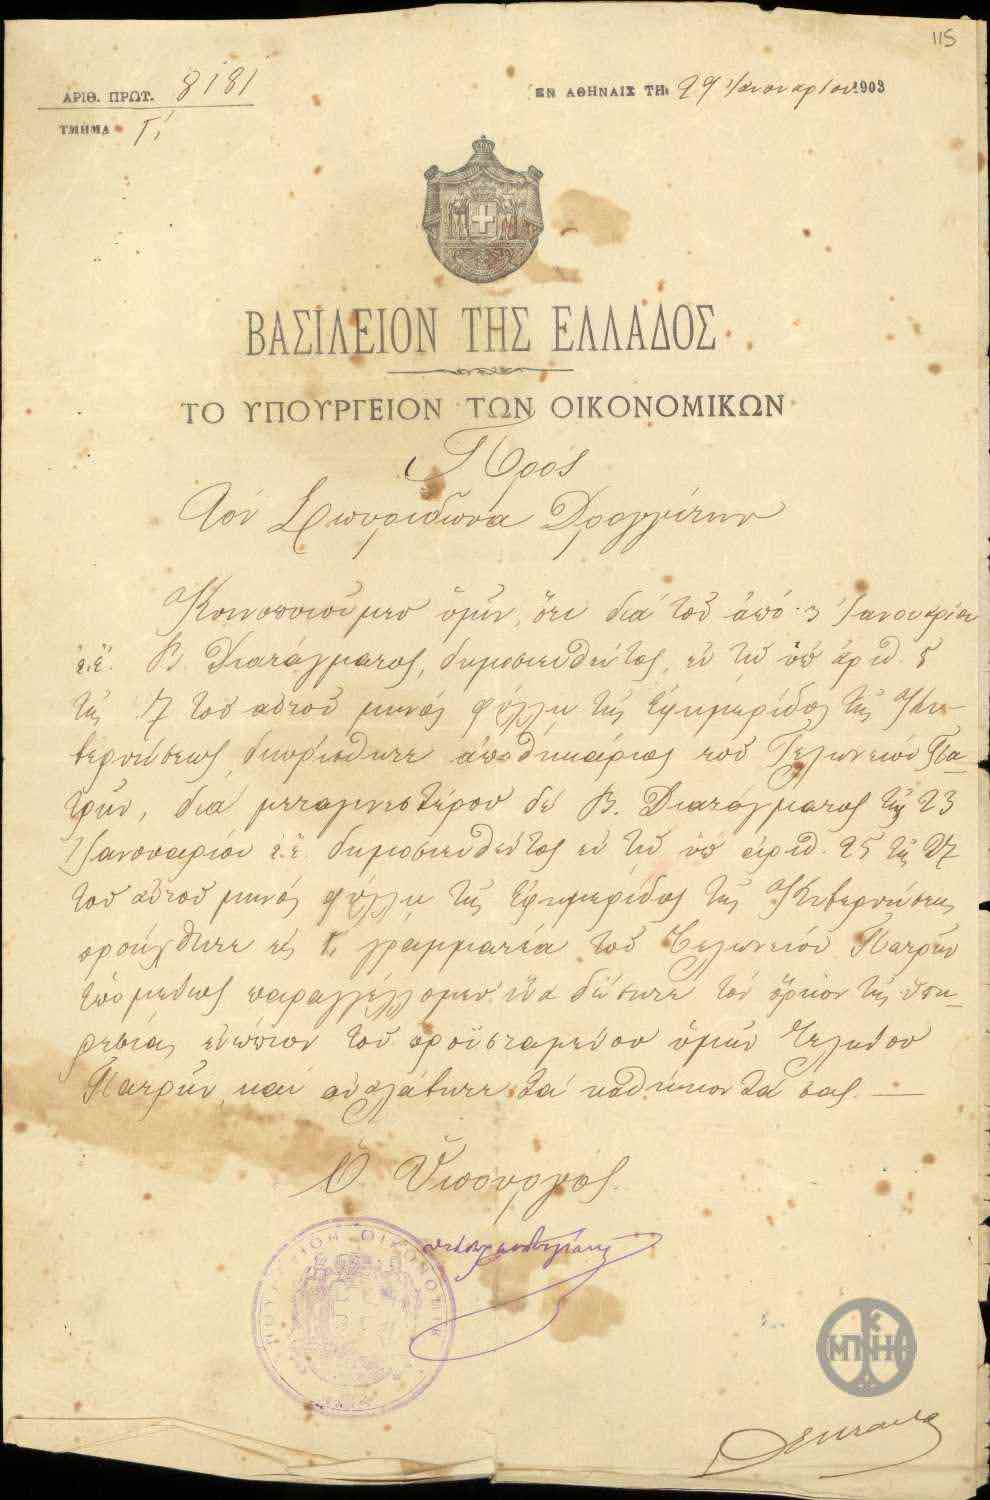 115
ΑΡΙΘ. ΠΡΩΤ. 8181
ΕΝ ΑΘΗΝΑΙΣ ΤΗι 29 Ιανουαρίου 1903
ΤΜΗΜΑ Γ'
ΒΑΣΙΛΕΙΟΝ ΤΗΣ ΕΛΛΑΔΟΣ
ΤΟ ΥΠΟΥΡΓΕΙΟΝ ΤΩΝ ΟΙΚΟΝΟΜΙΚΩΝ
Πρός
τόν Σπυρίδωνα
Κοινοποιοῦμεν ὑμῖν, ὅτι διά τοῦ ἀπό 3 Ἰανουαρίου
ἐ.ἔ. Β. Διατάγματος, δημοσιευθέντος ἐν τῷ ὑπ' ἀριθ. 5
τῆς 7 τοῦ αὐτοῦ μηνός φύλλῳ τῆς Ἐφημερίδος τῆς Κυ-
βερνήσεως, διωρίσθητε ἀποθηκάριος τοῦ Τελωνείου Πα-
τρῶν, διά μεταγενεστέρου δέ Β. Διατάγματος τῆς 23
Ἰανουαρίου ἐ.ἔ. δημοσιευθέντος ἐν τῷ ὑπ' ἀριθ. 25 τῆς 27
τοῦ αὐτοῦ μηνός φύλλῳ τῆς Ἐφημερίδος τῆς Κυβερνήσεως
προήχθητε εἰς γραμματέα τοῦ Τελωνείου Πατρῶν
Ἑπομένως παραγγέλλομεν ἵνα δώσητε τόν ὅρκον τῆς ὑπη-
ρεσίας ἐνώπιον τοῦ προϊσταμένου ὑμῶν Τελώνου
Πατρῶν καί ἀναλάβητε τά καθήκοντά σας. —
Ὁ Ὑπουργός
ΜΠΙΗΕ